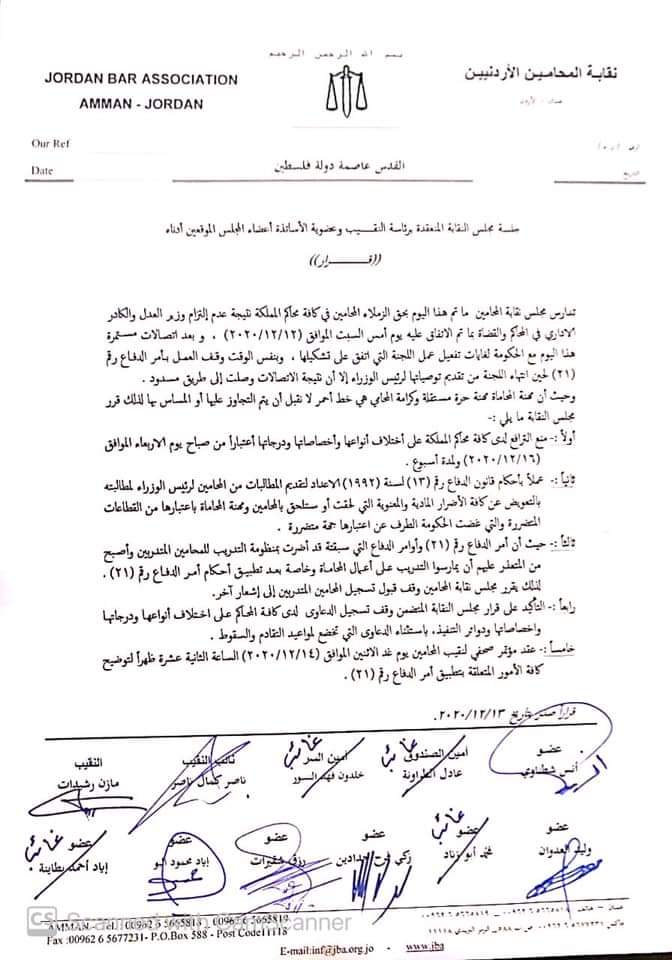 بسم الله الرحمن الرحيم
JORDAN BAR ASSOCIATION
AMMAN - JORDAN
نقابة المحامين الأردنيين
عمان - الأردن
Our Ref
Date
التاريخ
القدس عاصمة دولة فلسطين
جلسة مجلس النقابة المنعقدة برئاسة النقيب وعضوية الأساتذة أعضاء المجلس الموقعين أدناه
((قرار))
تدارس مجلس نقابة المحامين ما تم هذا اليوم بحق الزملاء المحامين في كافة محاكم المملكة نتيجة عدم إلتزام وزير العدل والكادر
الاداري في المحاكم والقضاة بما تم الاتفاق عليه يوم أمس السبت الموافق (٢٠٢٠/١٢/١٢) ، و بعد اتصالات مستمرة
هذا اليوم مع الحكومة لغايات تفعيل عمل اللجنة التي اتفق على تشكيلها ، وبنفس الوقت وقف العمل بأمر الدفاع رقم
(٢١) لحين انتهاء اللجنة من تقديم توصياتها لرئيس الوزراء إلا أن نتيجة الاتصالات وصلت إلى طريق مسدود .
وحيث أن مهنة المحاماة مهنة حرة مستقلة وكرامة المحامي هي خط أحمر لا نقبل أن يتم التجاوز عليها أو المساس بها لذلك قرر
مجلس النقابة ما يلي :-
أولاً :- منع الترافع لدى كافة محاكم المملكة على أختلاف أنواعها وأخصاصاتها ودرجاتها أعتباراً من صباح يوم الاربعاء الموافق
(٢٠٢٠/١٢/١٦) ولمدة أسبوع .
ثانياً :- عملاً بأحكام قانون الدفاع رقم (١٣) لسنة (١٩٩٢) الاعداد لتقديم المطالبات من المحامين لرئيس الوزراء لمطالبته
بالتعويض عن كافة الأضرار المادية والمعنوية التي لحقت أو ستلحق بالمحامين ومهنة المحاماة باعتبارها من القطاعات
المتضررة والتي غضت الحكومة الطرف عن اعتبارها جهة متضررة .
ثالثاً :- حيث أن أمر الدفاع رقم (٢١) وأوامر الدفاع التي سبقته قد أضرت بمنظومة التدريب للمحامين المتدربين وأصبح
من المتعذر عليهم أن يمارسوا التدريب على أعمال المحاماة وخاصة بعد تطبيق أحكام أمر الدفاع رقم (٢١) .
لذلك يقرر مجلس نقابة المحامين وقف قبول تسجيل المحامين المتدربين إلى إشعار آخر.
رابعاً :- التأكيد على قرار مجلس النقابة المتضمن وقف تسجيل الدعاوى لدى كافة المحاكم على اختلاف أنواعها ودرجاتها
واخصاصاتها ودوائر التنفيذ، باستثناء الدعاوى التي تخضع لمواعيد التقادم والسقوط .
خامساً :- عقد مؤتمر صحفي لنقيب المحامين يوم غد الاثنين الموافق (٢٠٢٠/١٢/١٤) الساعة الثانية عشرة ظهراً لتوضيح
كافة الأمور المتعلقة بتطبيق أمر الدفاع رقم (٢١) .
قراراً صدر بتاريخ ٢٠٢٠/١٢/١٣.
النقيب
مازن رشيدات
نائب النقيب
ناصر كمال ناصر
أمين السر
خلدون فهد النسور
غائب
أمين الصندوق
عادل الطراونة
غائب
عضو
أنس شطناوي
عضو
إياد أحمد بطاينة
غائب
عضو
إياد محمود أبو
عضو
رزق شقيرات
عضو
زكي فرح حدادين
عضو
محمد أبو زناد
غائب
عضو
وليد العدوان
AMMAN - TEL : 00962 6 5665819 00962 6 5665819
Fax :00962 6 5677231- P.O.Box 588 - Post Code11118
E-mail:inf@jba.org.jo - www.jba
CS Scanned with CamScanner